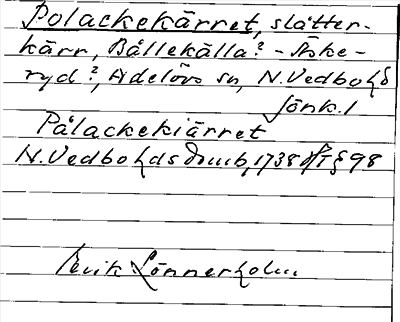 Polackekärret, slåtter-
kärr, Bållekälla? - Äske-
ryd?, Adelövs sn, N. Vedbo hd
Jönk. l
Pålackekiärret
N. Vedbo hds domb, 1738 § 98
Erik Lönnerholm